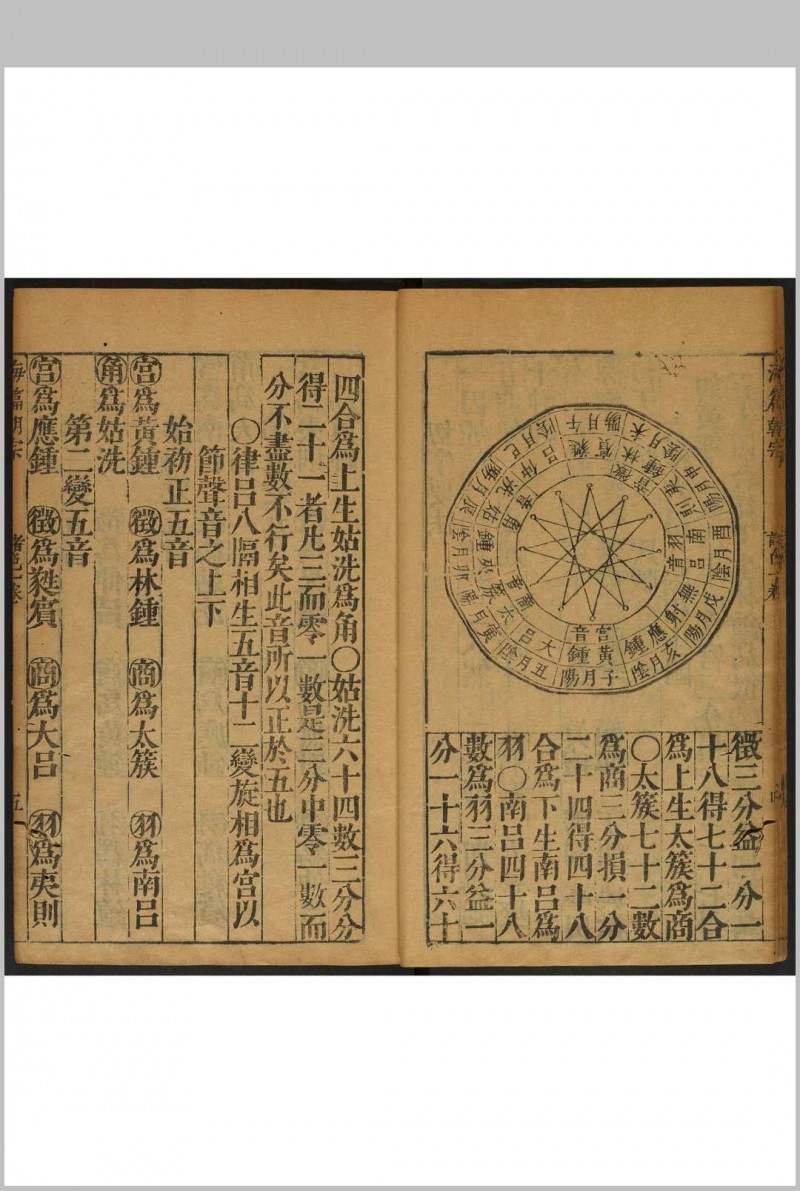 子月陽 黃鍾 宮音
丑月陰 大呂
寅月陽 太簇 商音
卯月陰 夾鍾
辰月陽 姑洗 角音
巳月陰 仲呂
午月陽 蕤賓
未月陰 林鍾 徵音
申月陽 夷則
酉月陰 南呂 羽音
戌月陽 無射
亥月陰 應鍾
徵三分益一分一
十八得七十二合
爲上生太簇爲商
○太簇七十二數
爲商三分損一分
二十四得四十八
合爲下生南呂爲
羽○南呂四十八
數爲羽三分益一
分一十六得六十
四合爲上生姑洗爲角○姑洗六十四數三分分
得二十一者凡三而零一數是三分中零一數而
分不盡數不行矣此音所以正於五也
○律呂八隔相生五音十二變旋相爲宮以
節聲音之上下
始初正五音
宮爲黃鍾 徵爲林鍾 商爲太簇 羽爲南呂
角爲姑洗
第二變五音
宮爲應鍾 徵爲蕤賓 商爲大呂 羽爲夷則
海篇朝宗 五